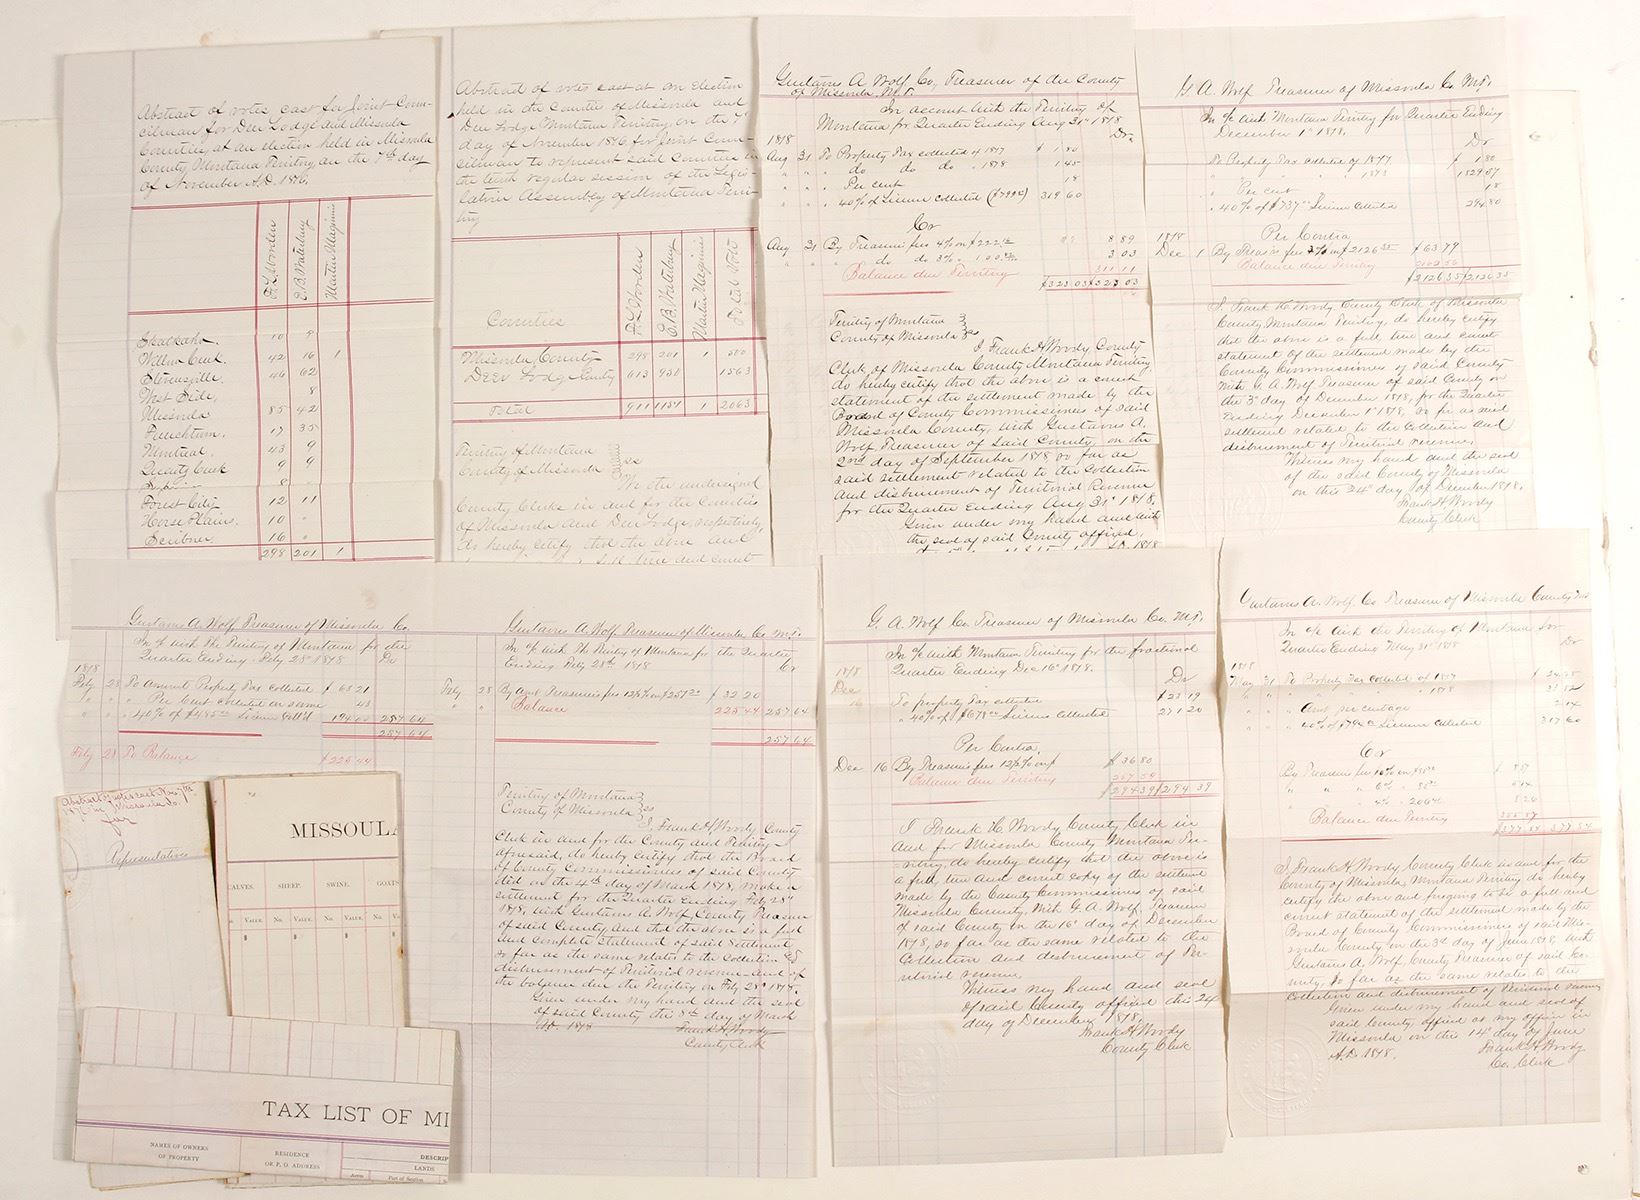 Abstract of votes cast for Joint Coun-
cilman for Deer Lodge and Missoula
Counties, at an election held in Missoula
County Montana Territory on the 7th day
of November A.D. 1876.
E. B. Waterbury
Martin Maginnis
Willow Creek. 42 16 1
Stevensville. 46 62
West Side, 8
Missoula 85 42
Frenchtown. 17 35
43 9
9 9
8 "
Forest City 12 11
Horse Plains. 10 "
Scribner. 16 "
298 201 1
Abstract of votes cast at an Election
held in the Counties of Missoula and
Deer Lodge Montana Territory on the 7th
day of November 1876, for Joint Coun-
cilman to represent said counties in
the tenth regular session of the Legis-
lative Assembly of Montana Terri-
tory
Counties
E. B. Waterbury
Martin Maginnis
Total Vote
Missoula County 298 201 1 500
Deer Lodge County 613 950 1563
Total 911 1151 1 2063
Territory of Montana
County of Missoula } ss
We the undersigned
County Clerks in and for the Counties
of Missoula and Deer Lodge, respectively,
do hereby certify that the above and
Gustavus A. Wolf, Co, Treasurer of the County
of Missoula, M.T.
In account with the Territory of
Montana for Quarter Ending Aug 31st 1878
Dr.
1878
Aug 31 To Property Tax collected of 1877 $ 1.80
" " " do do do " 1878 1.45
" " " Per cent 18
" " " 40% of License collected 319.60
Cr
Aug 31 By Treasurers fees 4% on 8.89
" " " do do 3% " 3.03
Balance due Territory 311.11
$323.03 $323.03
Territory of Montana
County of Missoula } ss
I, Frank H. Woody, County
Clerk of Missoula County Montana Territory,
do hereby certify that the above is a correct
statement of the settlement made by the
Board of County Commissioners of said
Missoula County, with Gustavus A.
Wolf Treasurer of said County, on the
2nd day of September 1878 so far as
said settlement related to the Collection
and disbursement of Territorial Revenue
for the Quarter Ending Aug 31st 1878.
Given under my hand and with
the seal of said County affixed,
A.D. 1878
G. A. Wolf Treasurer of Missoula Co M.T.
In a/c with Montana Territory for Quarter Ending
December 1st 1878.
Dr
To Property Tax collected of 1877 $ 1.80
" " " " 1878 1829.57
" Per cent 18
" 40% of $737 License collected 294.80
Per Contra
1878
Dec 1 By Treas'rs fees 3% on $2126.35 $63.79
Balance due Territory 2062.56
$2126.35 $2126.35
I, Frank H. Woody County Clerk of Missoula
County Montana Territory, do hereby certify
that the above is a full true and correct
statement of the settlement made by the
County Commissioners of said County
with G. A. Wolf Treasurer of said County on
the 3d day of December 1878, for the Quarter
Ending December 1st 1878, so far as said
settlement related to the Collection and
disbursement of Territorial revenue.
Witness my hand and the seal
of the said County of Missoula
on this 24th day of December 1878.
Frank H Woody
County Clerk
Gustavus A. Wolf Treasurer of Missoula Co.
In a/c with The Territory of Montana for the
Quarter Ending Feby 28th 1878 Dr
1878
Feby 28 To Amount Property Tax collected $ 63.21
" " " Per Cent collected on same 43
" " " 40% of License Coll'd 194.00 257.64
257.64
Feby 28 To Balance $225.44
Gustavus A. Wolf Treasurer of Missoula Co M.T.
In a/c with The Territory of Montana for the Quarter
Ending Feby 28th 1878 Cr
Feby 28 By amt Treasurers fees 12½% on $257 $ 32.20
" " Balance 225.44 257.64
257.64
Territory of Montana
County of Missoula } ss
I, Frank H. Woody County
Clerk in and for the County and Territory
aforesaid, do hereby certify that the Board
of County Commissioners of said County
did on the 4th day of March 1878, make a
settlement for the Quarter Ending Feby 28th
1878, with Gustavus A. Wolf County Treasurer
of said County, and that the above is a full
and complete statement of said settlement
so far as the same relates to the Collection &
disbursement of Territorial revenue and of
the balance due the Territory on Feby 28th 1878.
Given under my hand and the seal
of said County the 8th day of March
A.D. 1878
Frank H. Woody
County Clerk
G. A. Wolf Co Treasurer of Missoula Co M.T.
In a/c with Montana Territory for the fractional
Quarter Ending Dec 16th 1878.
Dr
1878
Dec 16 To property Tax collected $ 23.19
" 40% of $678 License collected 271.20
Per Contra,
Dec 16 By Treasurers fees 12½% on $ $ 36.80
Balance due Territory 257.59
$294.39 $294.39
I Frank H. Woody County Clerk in
and for Missoula County Montana Ter-
ritory, do hereby certify that the above is
a full, true and correct copy of the settlement
made by the County Commissioners of said
Missoula County, with G. A. Wolf, Treasurer
of said County on the 16th day of December
1878, so far as the same related to the
Collection and disbursement of Ter-
ritorial revenue.
Witness my hand and seal
of said County affixed this 24
day of December, 1878.
Frank H. Woody
County Clerk
Gustavus A. Wolf, Co Treasurer of Missoula County M.T.
In a/c with the Territory of Montana for
Quarter Ending May 31st 1878 Dr
1878
May 31 To Property Tax collected of 1877
" " " " " " 1878
" " " Amt percentage
" " " 40% of License collected 317.60
Cr
By Treasurers fees 10% on
" " " 6% "
" " 4% "
Balance due Territory
$377.54 377.54
I, Frank H. Woody, County Clerk in and for the
County of Missoula, Montana Territory do hereby
certify the above and foregoing to be a full and
correct statement of the settlement made by the
Board of County Commissioners of said Mis-
soula County on the 3d day of June 1878, with
Gustavus A. Wolf, County Treasurer of said Co-
unty, so far as the same relates to the
Collection and disbursement of Territorial revenue
Given under my hand and seal of
said County, affixed at my office in
Missoula on the 14th day of June
A.D. 1878.
Frank H Woody
Co. Clerk
Abstract votes cast Nov. 7th
1876 in Missoula Co.
for
Representatives
MISSOULA
CALVES. SHEEP. SWINE. GOATS
VALUE. No. VALUE. No. VALUE. No. VA
$ $ $
TAX LIST OF MI
NAMES OF OWNERS
OF PROPERTY
RESIDENCE
OR P. O. ADDRESS
DESCRIP
LANDS
Acres Part of Section